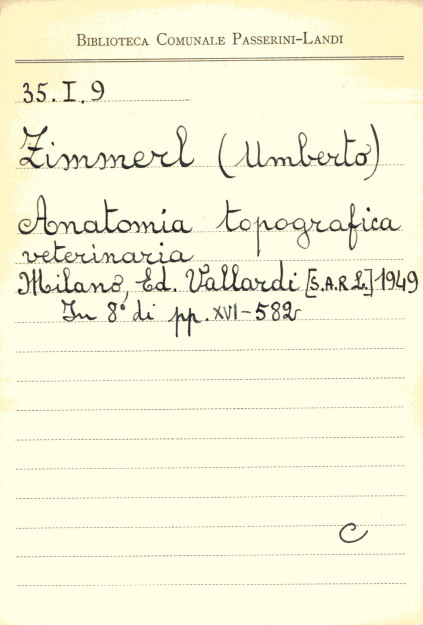 BIBLIOTECA COMUNALE PASSERINI-LANDI
35.I.9
Zimmerl (Umberto)
Anatomia topografica
veterinaria
Milano, Ed. Vallardi [S.A.R.L.] 1949
In 8° di pp. XVI-582
C